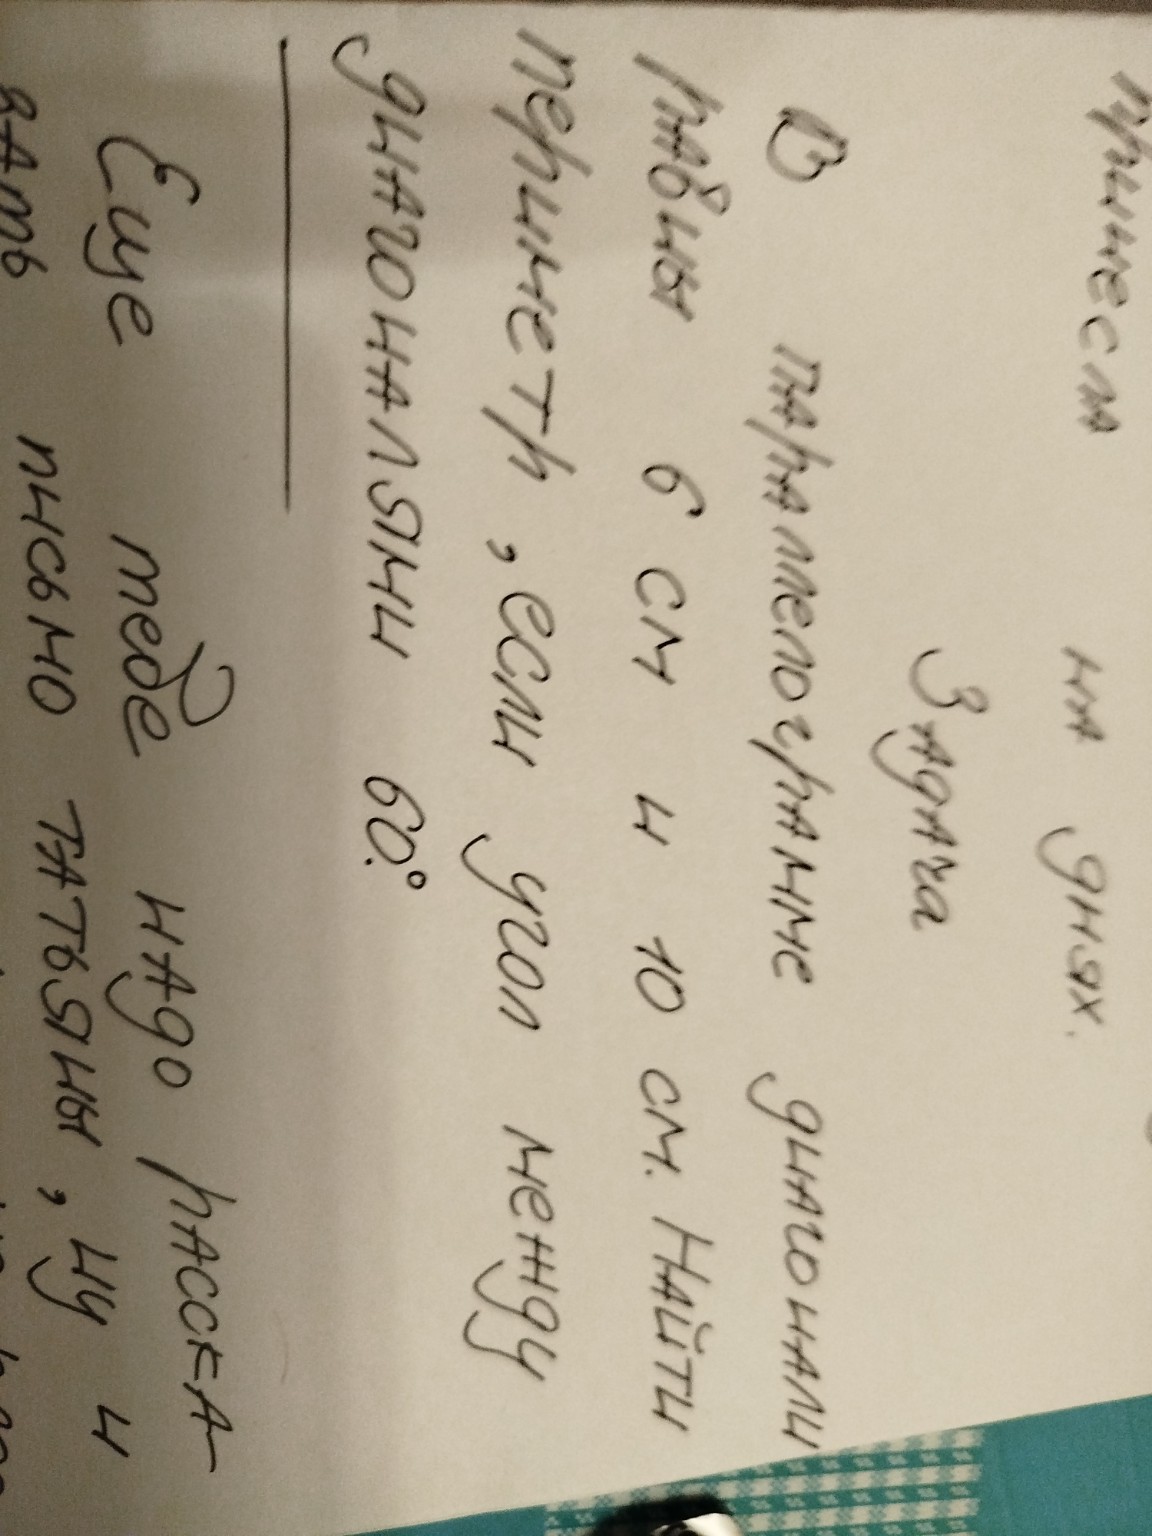 принесла на днях.
Задача
В параллелограмме диагонали
равны 6 см и 10 см. Найти
периметр, если угол между
диагоналями 60°.
Еще тебе надо расска-
зать письмо Татьяны, ну и